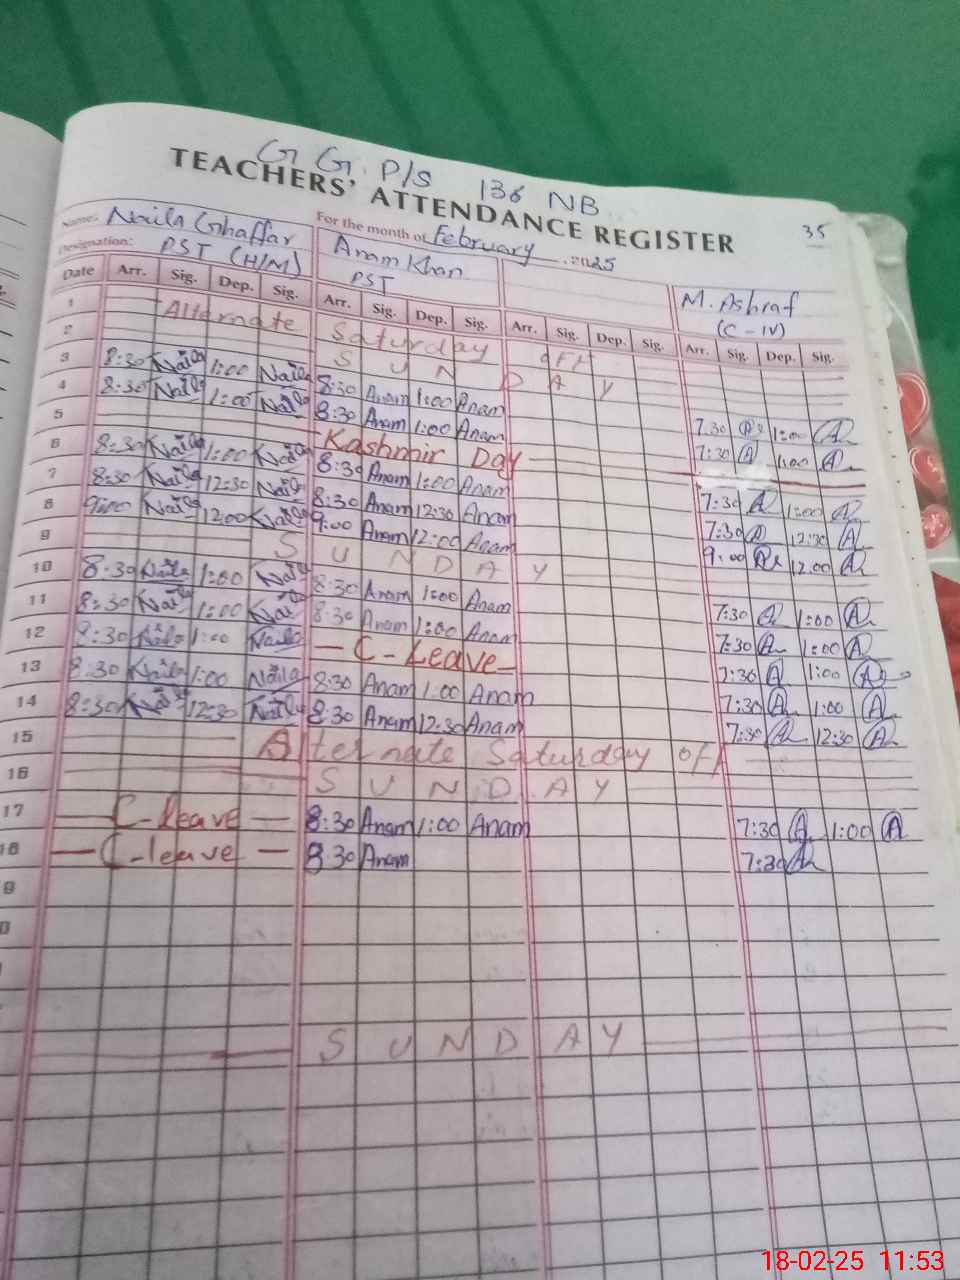 G G. P/S 136 NB
TEACHERS' ATTENDANCE REGISTER 35
Name: Naila Ghaffar For the month of February 2025
Designation: PST (H/M) Anam Khan PST M. Ashraf (C-IV)
Date Arr. Sig. Dep. Sig. Arr. Sig. Dep. Sig. Arr. Sig. Dep. Sig. Arr. Sig. Dep. Sig.
1 Alternate Saturday off
2 S U N D A Y
3 8:30 Naila 1:00 Naila 8:30 Anam 1:00 Anam 7:30 1:00
4 8:30 Naila 1:00 Naila 8:30 Anam 1:00 Anam 7:30 A 1:00 A
5 Kashmir Day
6 8:30 Naila 1:00 Naila 8:30 Anam 1:00 Anam 7:30 A 1:00 A
7 8:30 Naila 12:30 Naila 8:30 Anam 12:30 Anam 7:30 12:30 A
8 9:00 Naila 12:00 Naila 9:00 Anam 12:00 Anam 9:00 12:00 A
9 S U N D A Y
10 8:30 Naila 1:00 Naila 8:30 Anam 1:00 Anam 7:30 A 1:00 A
11 8:30 Naila 1:00 Naila 8:30 Anam 1:00 Anam 7:30 A 1:00 A
12 8:30 Naila 1:00 Naila - C - Leave - 7:30 A 1:00 A
13 8:30 Naila 1:00 Naila 8:30 Anam 1:00 Anam 7:30 A 1:00 A
14 8:30 Naila 12:30 Naila 8:30 Anam 12:30 Anam 7:30 A 12:30 A
15 Alternate Saturday off
16 S U N D A Y
17 - C-leave - 8:30 Anam 1:00 Anam 7:30 A 1:00 A
18 - C-leave - 8:30 Anam 7:30 A
S U N D A Y
18-02-25 11:53